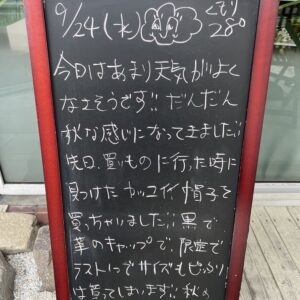 9/24(水) くもり 28°
今日はあまり天気がよく
なさそうです!! だんだん
秋な感じになってきました!!
先日、買いものに行った時に
見つけたカッコイイ帽子を
買っちゃいました!! 黒で
革のキャップで、限定で
ラスト1つでサイズもピッタリ